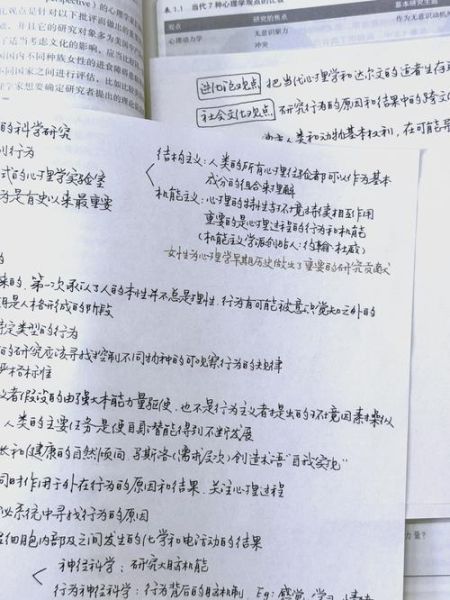 rspective）的心理学家
观点是针对以下批评而提出的
，并且它的研究对象多为美国
了适当考虑文化的影响，应当比较
不同国家之间进行评估，比如比较
学家想要确定研究者提出的理论
表 1.1 当代7种心理学观点的比较
观点 研究的焦点 基本研究主题
心理动力学 无意识驱力 作为无意识动机
冲突
进化论观点 把当代心理学和达尔文的适者生存
社会文化观点 研究行为的原因和结果中的跨文化
人类和动物基本权利，在可能
的科学研究
行为
式的心理学实验室
为是有史以来最重要
结构主义：人类的所有心理经验都可以作为基本
成分的组合来理解
机能主义：心理的特性与环境持续相互作用
重要的是心理过程的行为和机能
（机能主义学派创始人：约翰·杜威）
女性为心理学早期历史做出了重要的研究贡献
的
来的，第一次承认了人的本性并不总是理性，行为有可能被意识觉知之外的
是人格形成的阶段
特定类型的行为
的研究应该寻找控制不同物种的可观察行为的规律
严格标准
义者假设的由强大本能力量驱使，也不是行为主义者提出的环境因素操纵
人类的主要任务是使自身潜能得到不断发展
长和健康的自然倾向，马斯洛（需求层次）创造术语“自我实现”
同时作用于外在行为的原因和结果，关注心理过程
系统中寻找行为的原因
细胞内部及之间发生的化学和电活动的结果
神经科学：研究大脑机能
行为神经科学：行为背后的脑机制，Eg：感觉，学习，情绪
力量？